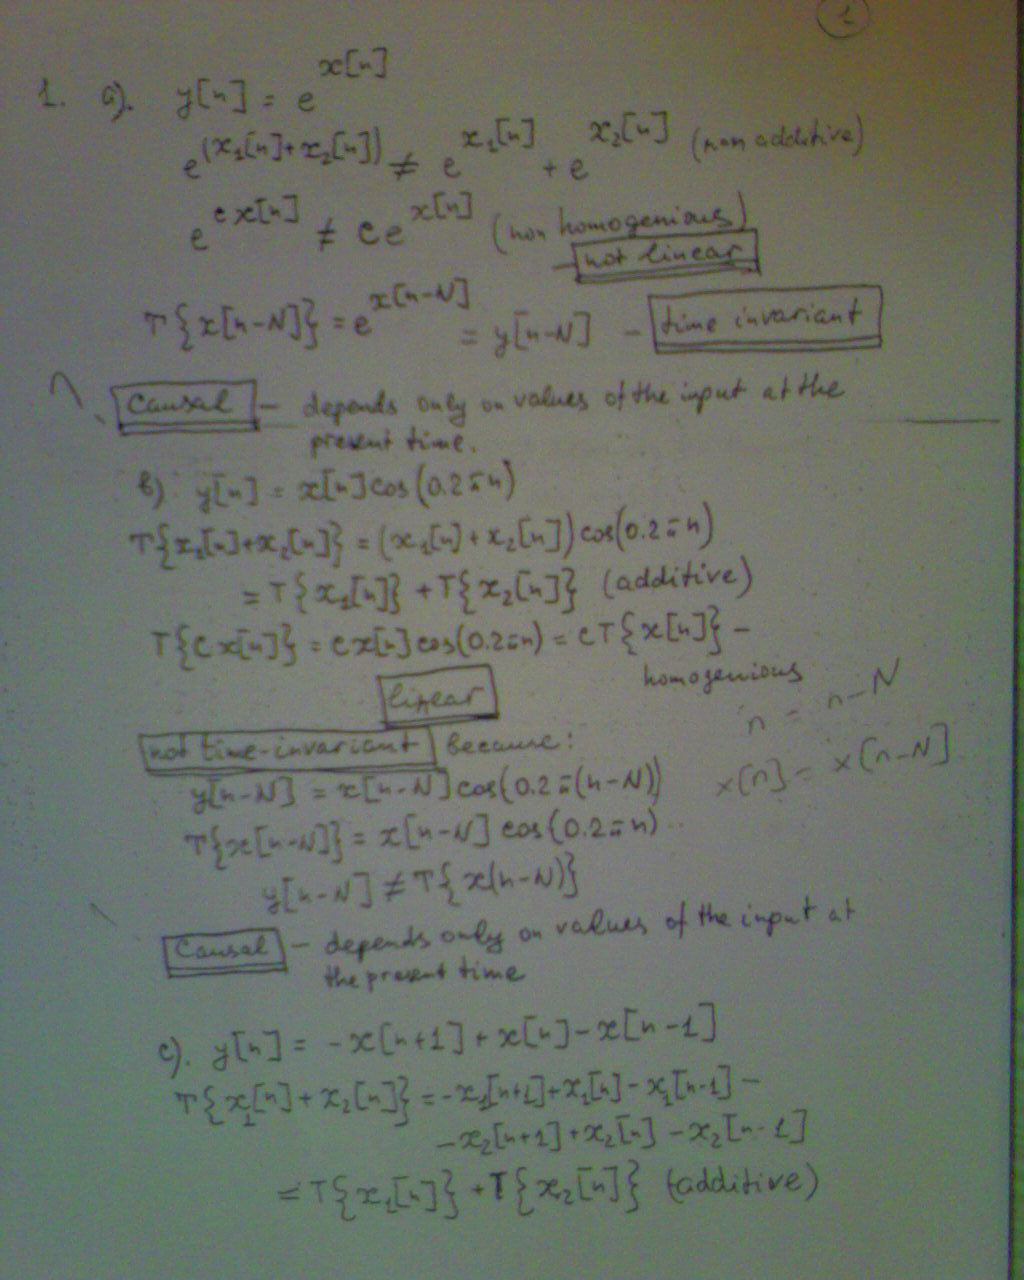 1
1. a). y[n] = e^{x[n]}
e^{(x₁[n]+x₂[n])} ≠ e^{x₁[n]} + e^{x₂[n]} (non additive)
e^{c x[n]} ≠ c e^{x[n]} (non homogenious)
– not linear
T{x[n-N]} = e^{x[n-N]} = y[n-N] – time invariant
Causal – depends only on values of the input at the
present time.
b) y[n] = x[n]cos(0.2πn)
T{x₁[n]+x₂[n]} = (x₁[n]+x₂[n])cos(0.2πn)
= T{x₁[n]} + T{x₂[n]} (additive)
T{c x[n]} = c x[n]cos(0.2πn) = cT{x[n]} –
homogenious
linear
n = n-N
not time-invariant because:
x[n] = x[n-N]
y[n-N] = x[n-N]cos(0.2π(n-N))
T{x[n-N]} = x[n-N]cos(0.2πn)
y[n-N] ≠ T{x(n-N)}
Causal – depends only on values of the input at
the present time
c). y[n] = -x[n+1] + x[n] - x[n-1]
T{x₁[n] + x₂[n]} = -x₁[n+1]+x₁[n]-x₁[n-1] –
-x₂[n+1]+x₂[n]-x₂[n-1]
= T{x₁[n]} + T{x₂[n]} (additive)